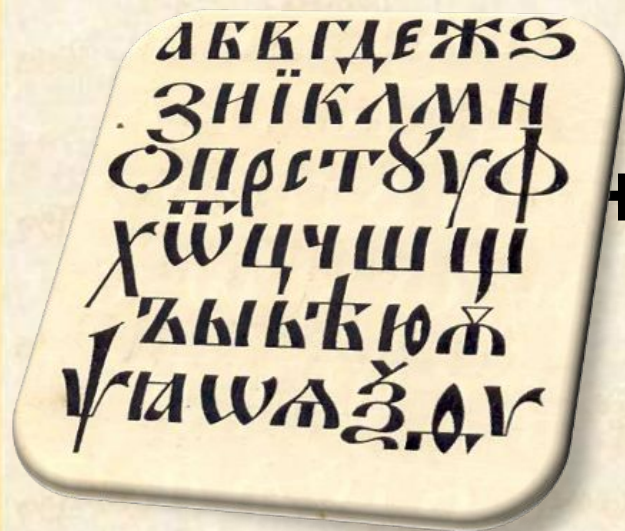 абвгдежѕ
зиїклмн
ѻпрстꙋуф
хѿцчшщ
ъыьѣюѫ
ѱꙗѡѧѯѳѵ